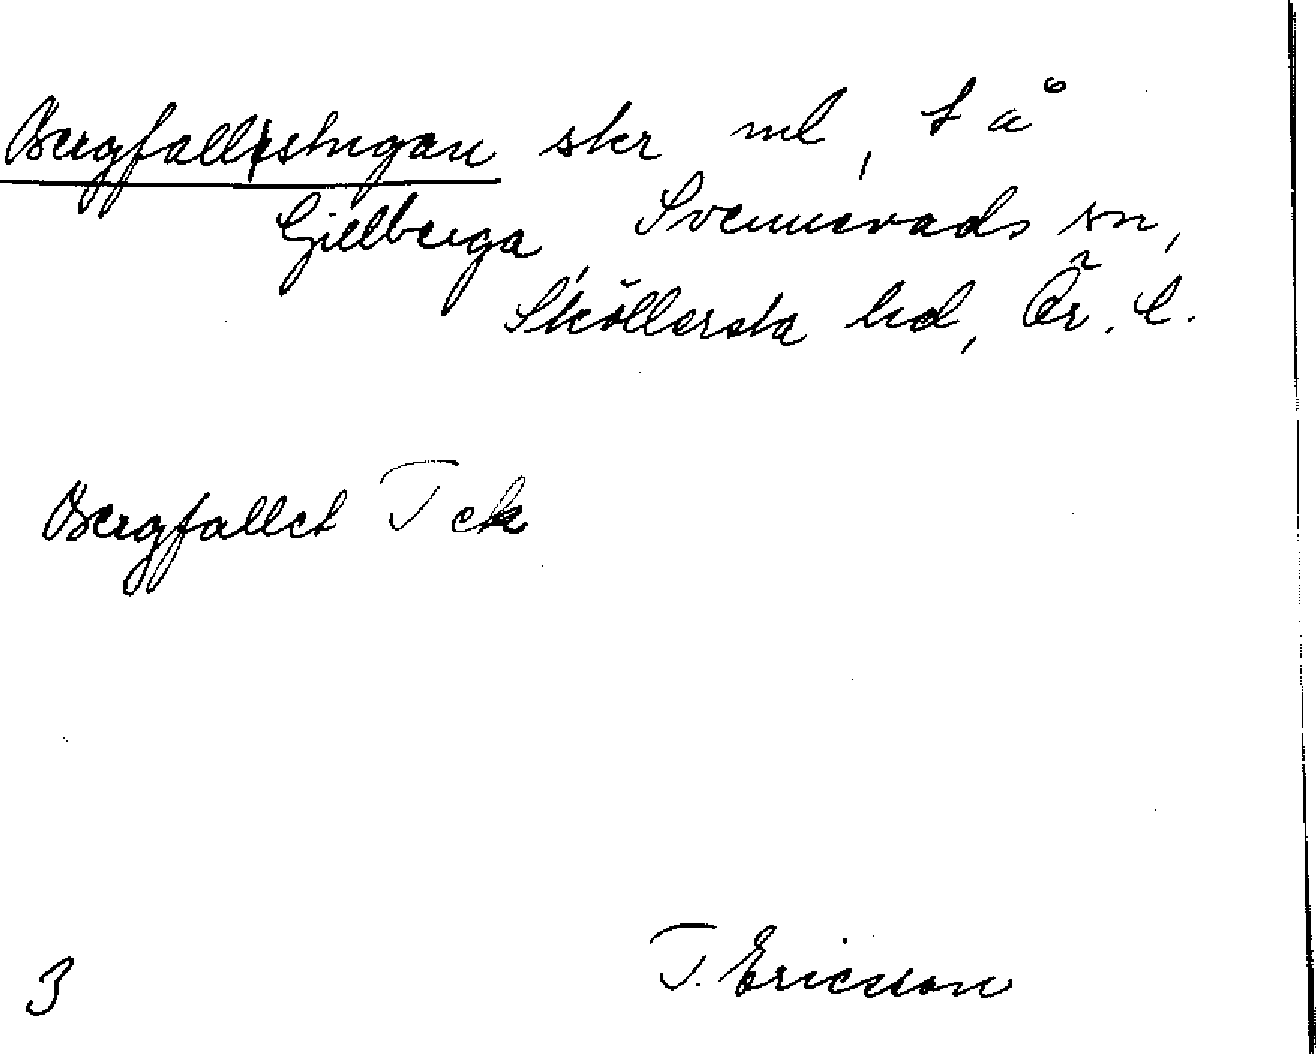 Bergfallsstugan skr ml, t å
Gjellberga, Svennevads sn,
Sköllersta hd, Ör. l.
Bergfallet T ek
T. Ericsson
3